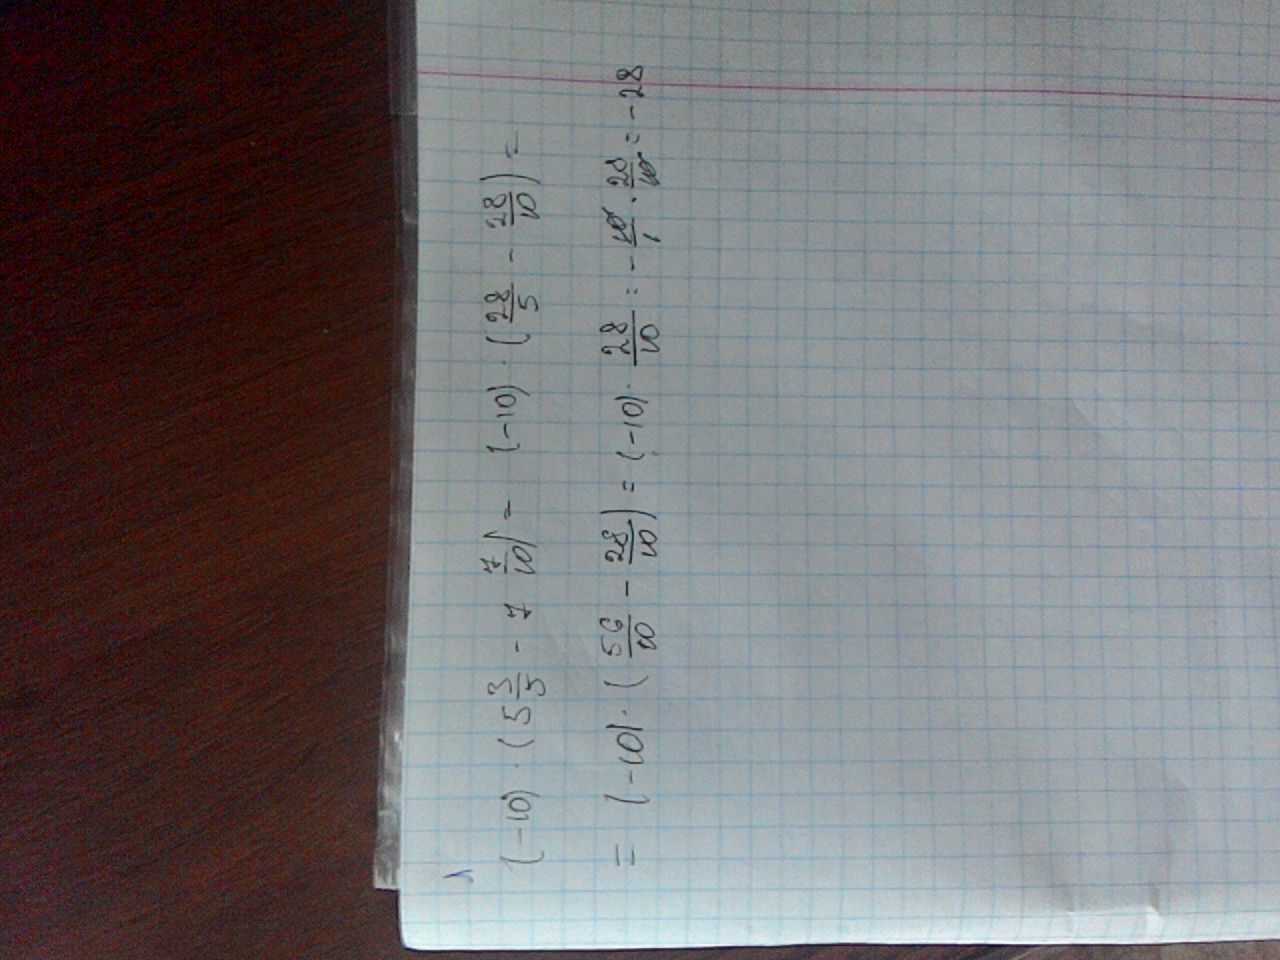 (-10) · (5 3/5 - 7 7/10) = (-10) · (28/5 - 28/10) =
= (-10) · (56/10 - 28/10) = (-10) · 28/10 = - 10/1 · 28/10 = - 28